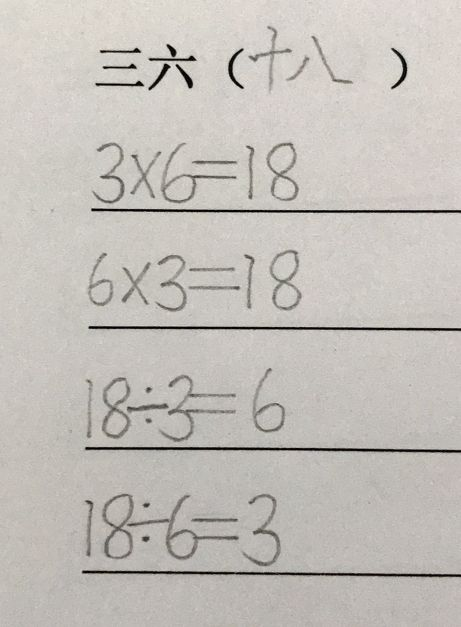 三六（十八）
3×6=18
6×3=18
18÷3=6
18÷6=3